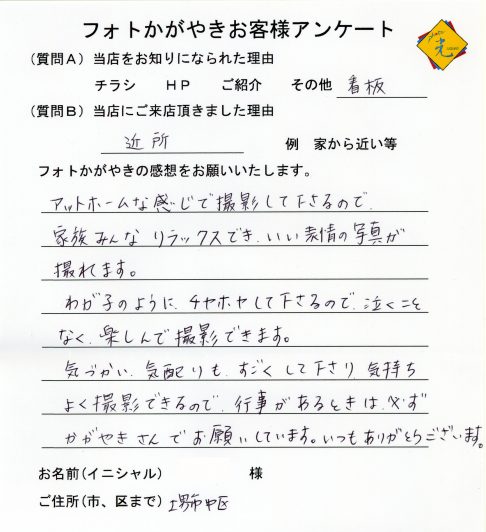 フォトかがやきお客様アンケート
(質問A)当店をお知りになられた理由
チラシ　HP　ご紹介　その他 看板
(質問B)当店にご来店頂きました理由
近所　例　家から近い等
フォトかがやきの感想をお願いいたします。
アットホームな感じで撮影して下さるので、
家族みんな リラックスでき、いい表情の写真が
撮れます。
わが子のように、チヤホヤして下さるので、泣くこと
なく、楽しんで撮影できます。
気づかい、気配りも、すごくして下さり、気持ち
よく撮影できるので、行事があるときは、必ず
かがやきさんでお願いしています。いつもありがとうございます。
お名前(イニシャル)　様
ご住所(市、区まで) 堺市中区